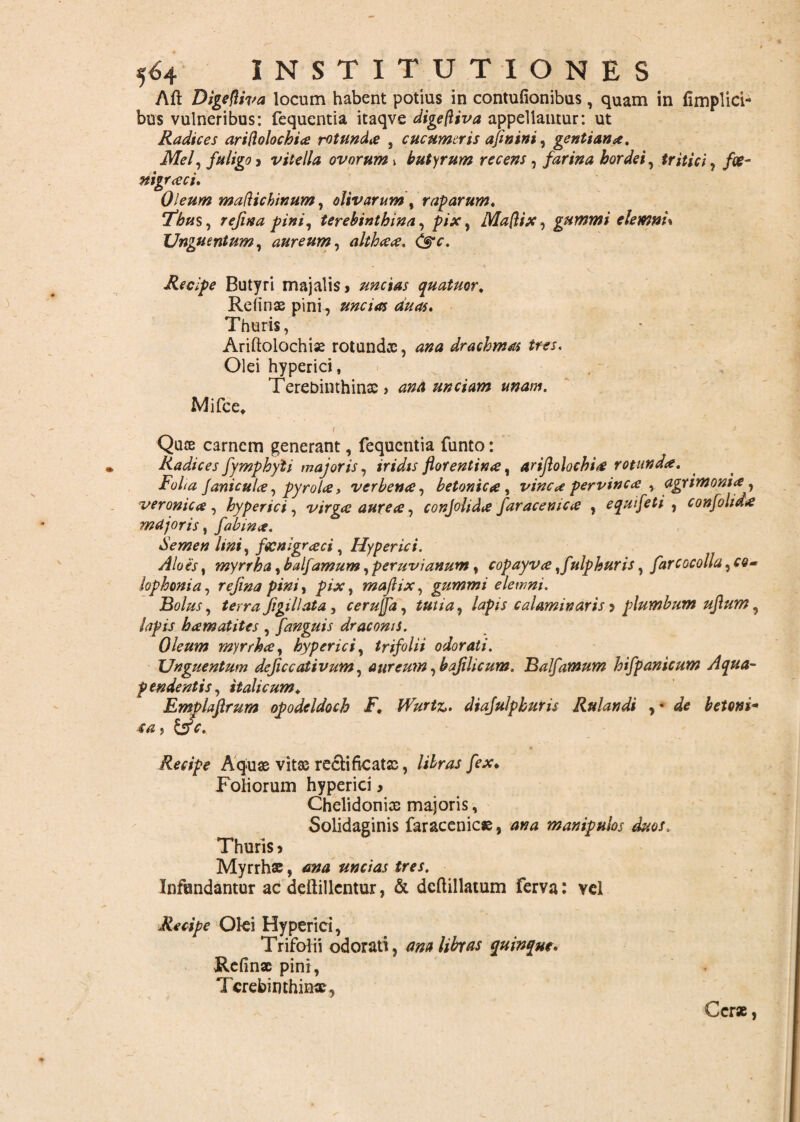 564 INSTITUTIONES
Aſt Digeſtiva locum habent potius in contuſionibus, quam in ſimplici-
bus vulneribus: ſequentia itaqve digeſtiva appellantur: ut
Radices ariſtolochiæ rotundæ, cucumeris aſinini, gentianæ.
Mel, fuligo, vitella ovorum, butyrum recens, farina hordei, tritici, fœ-
nigræci.
Oleum maſtichinum, olivarum, raparum.
Thus, reſina pini, terebinthina, pix, Maſtix, gummi elemni.
Unguentum, aureum, althææ. &c.
Recipe Butyri majalis, uncias quatuor.
Reſinæ pini, uncias duas.
Thuris,
Ariſtolochiæ rotundæ, ana drachmas tres.
Olei hyperici,
Terebinthinæ, ana unciam unam.
Miſce.
Quæ carnem generant, ſequentia ſunto:
Radices ſymphyti majoris, iridis florentinæ, ariſtolochiæ rotundæ.
Folia ſaniculæ, pyrolæ, verbenæ, betonicæ, vincæ pervincæ, agrimoniæ,
veronicæ, hyperici, virgæ aureæ, conſolidæ ſaracenicæ, equiſeti, conſolidæ
majoris, ſabinæ.
Semen lini, fœnigræci, Hyperici.
Aloës, myrrha, balſamum, peruvianum, copayvæ, ſulphuris, ſarcocolla, co-
lophonia, reſina pini, pix, maſtix, gummi elemni.
Bolus, terra ſigillata, ceruſſa, tutia, lapis calaminaris, plumbum uſtum,
lapis hæmatites, ſanguis draconis.
Oleum myrrhæ, hyperici, trifolii odorati.
Unguentum deſiccativum, aureum, baſilicum. Balſamum hiſpanicum Aqua-
pendentis, italicum.
Emplaſtrum opodeldoch F. Wurtz. diaſulphuris Rulandi, de betoni-
ca, &c.
Recipe Aquæ vitæ rectificatæ, libras ſex.
Foliorum hyperici,
Chelidoniæ majoris,
Solidaginis ſaracenicæ, ana manipulos duos.
Thuris,
Myrrhæ, ana uncias tres.
Infundantur ac deſtillentur, & deſtillatum ſerva: vel
Recipe Olei Hyperici,
Trifolii odorati, ana libras quinque.
Reſinæ pini,
Terebinthinæ,
Ceræ,